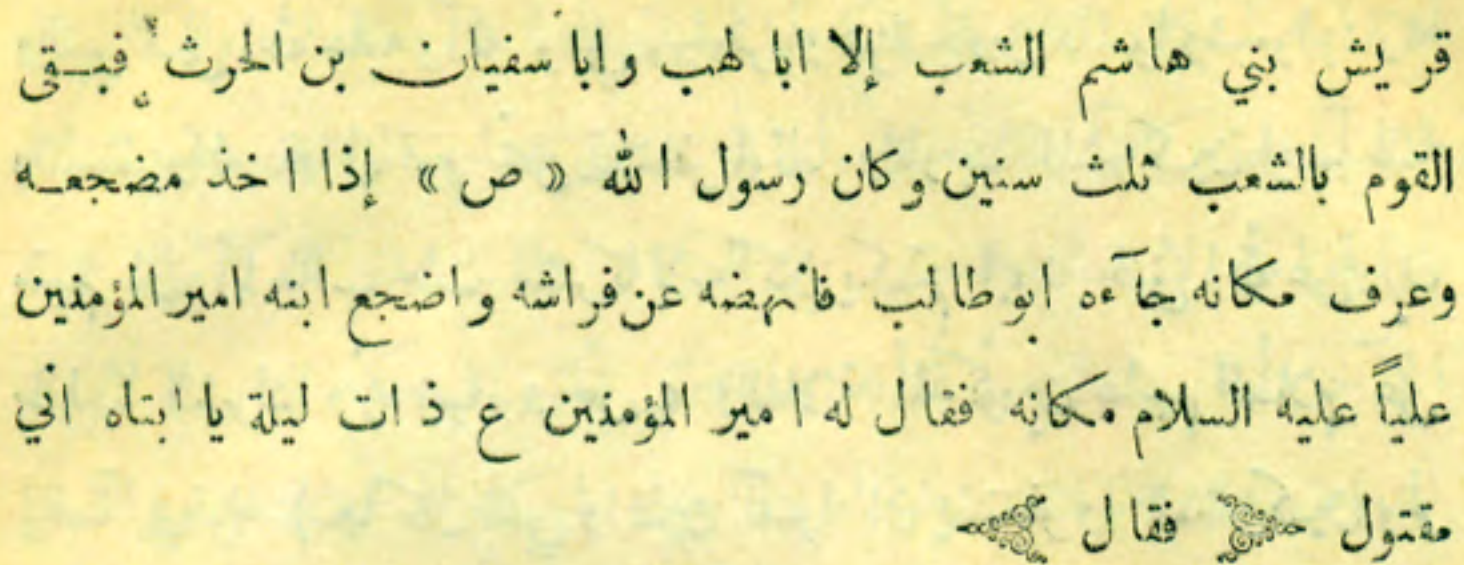 قريش بني هاشم الشعب إلا ابا لهب وابا سفيان بن الحرث فبقى
القوم بالشعب ثلث سنين وكان رسول الله « ص » إذا اخذ مضجعه
وعرف مكانه جآءه ابو طالب فانهضه عن فراشه واضجع ابنه امير المؤمنين
علياً عليه السلام مكانه فقال له امير المؤمنين ع ذات ليلة يا ابتاه اني
مقتول فقال